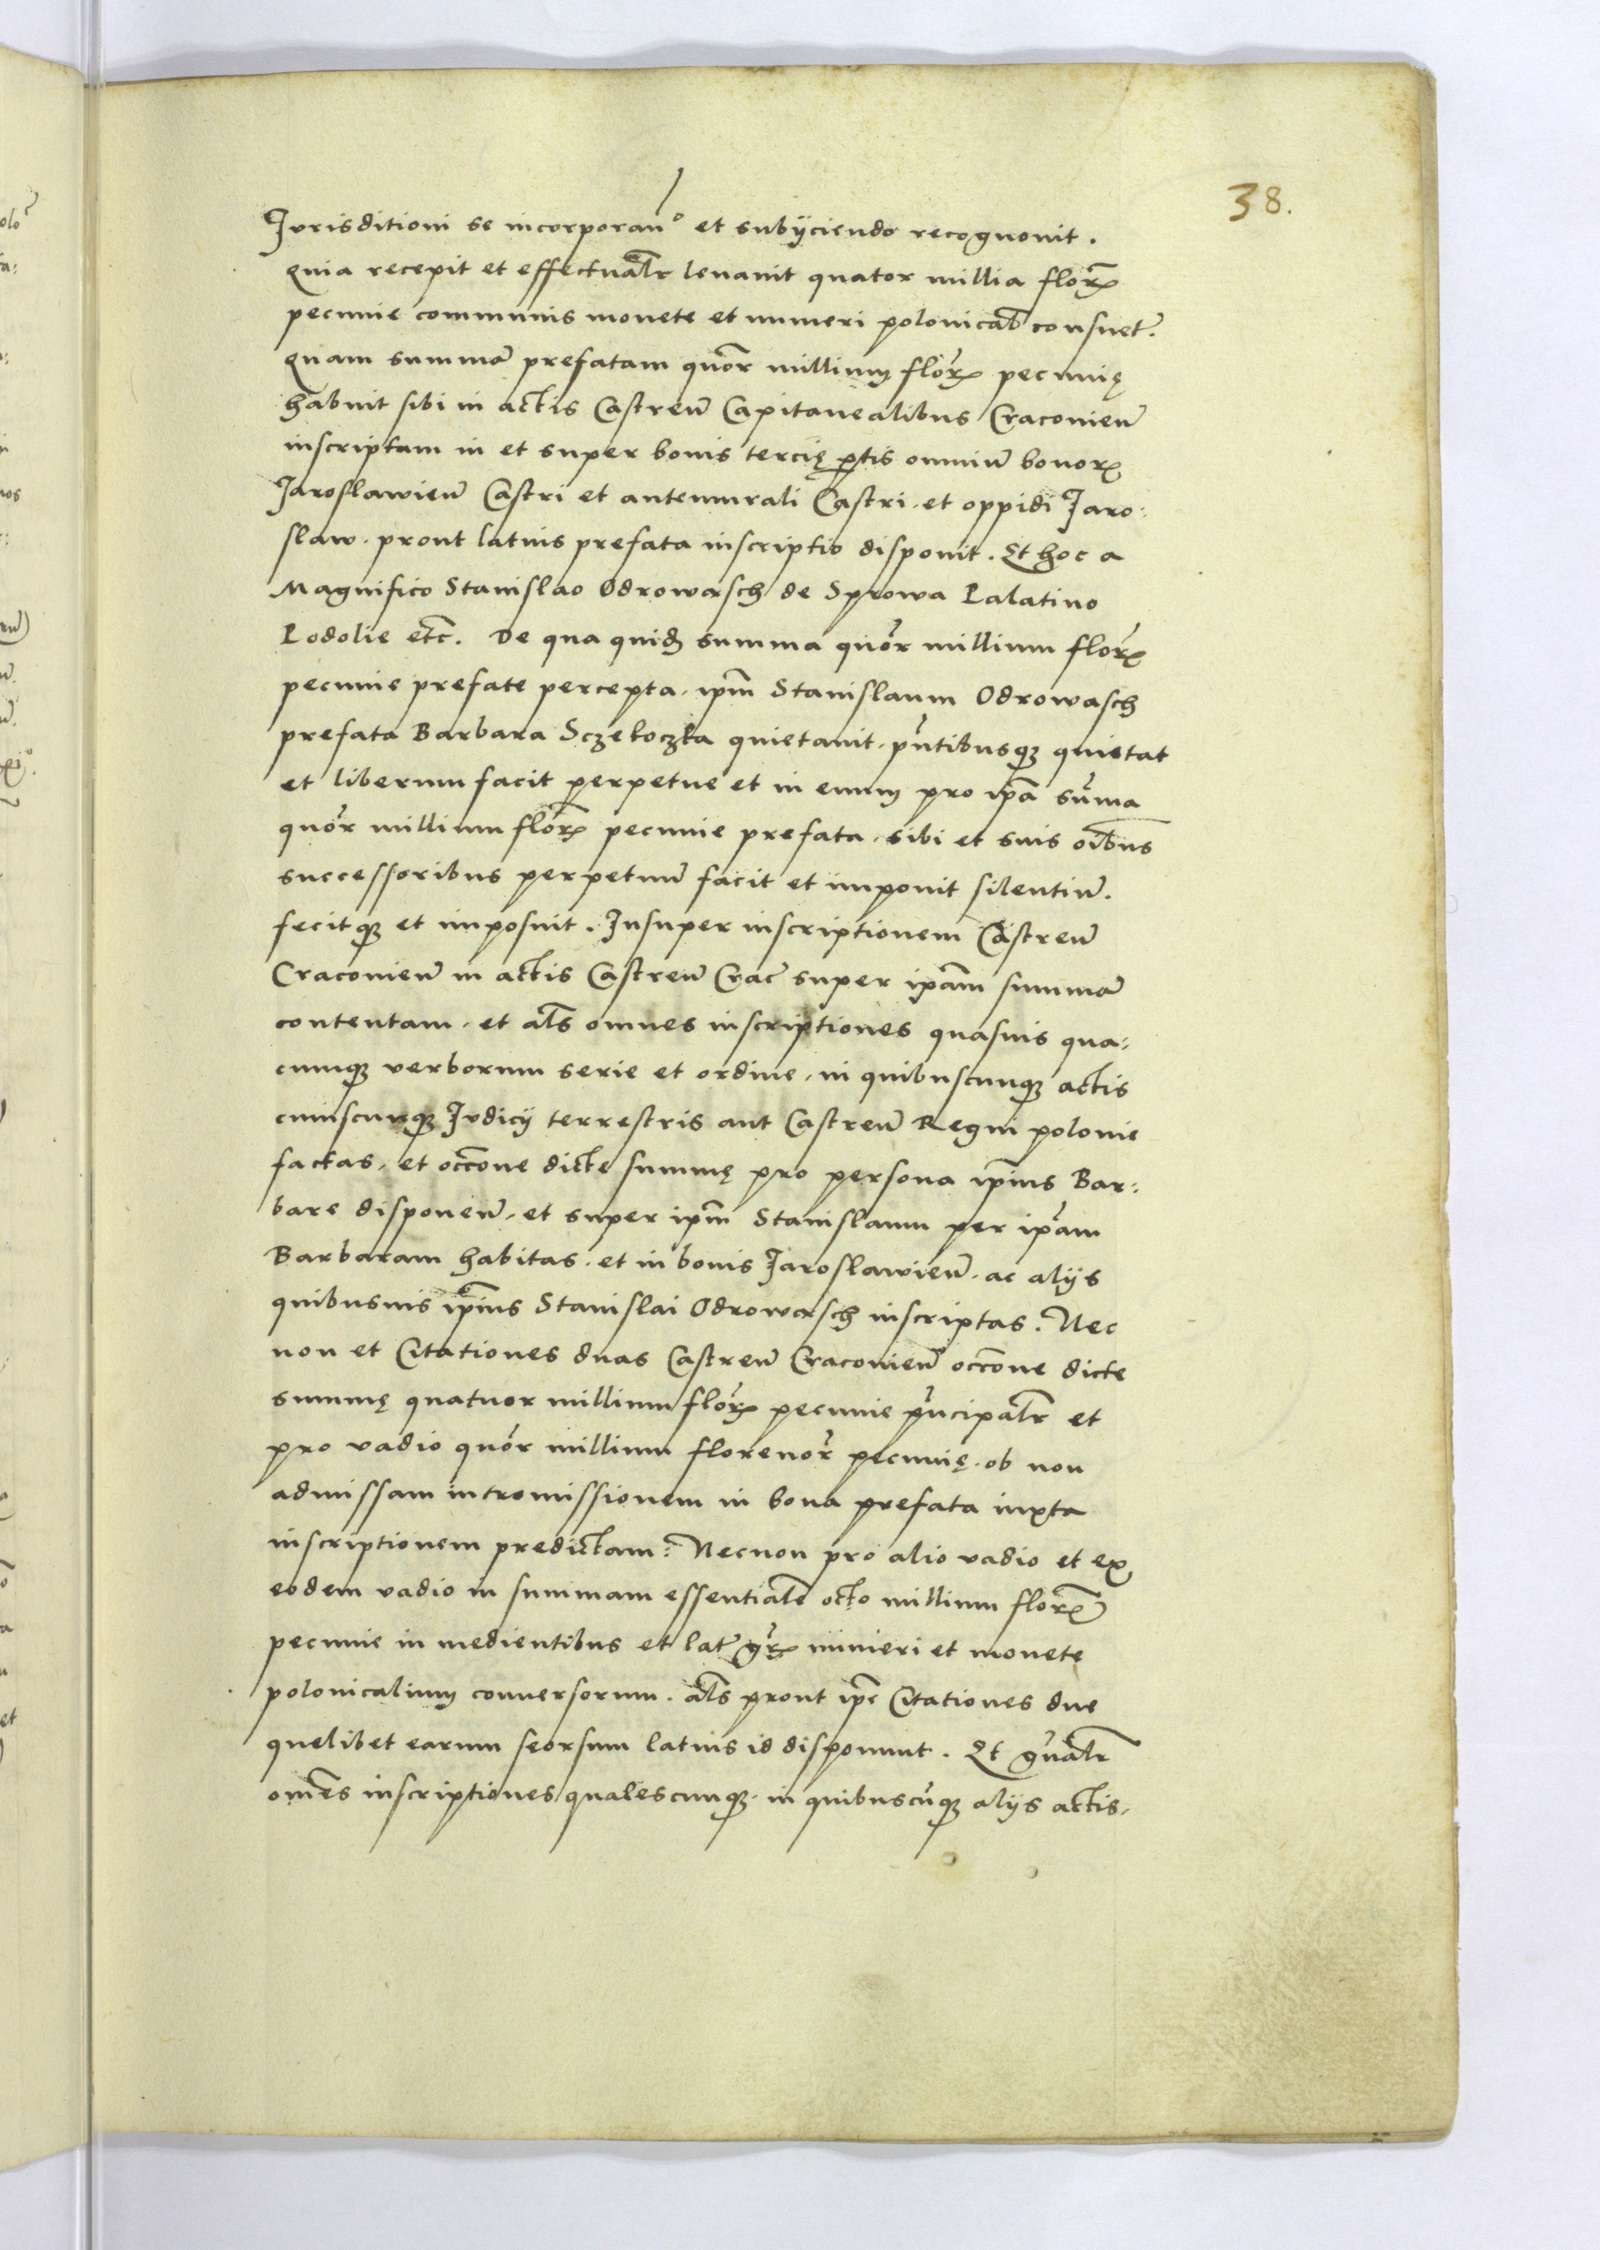 38.
Jurisditioni se incorporan͂° et subijciendo recognovit.
Quia recepit et effectual͂r levavit quator millia flor͂
pecunie communis monete et numeri polonical͂ consuet͂.
Quam summa͂ prefatam quor͂ millium flor͂ pecunię
habuit sibi in actis Castren͂ Capitanealibus Craconien͂
inscriptam in et super bonis tercię ꝑtis omniu͂ bonor͂
Jaroslawien͂ Castri et antemurali Castri. et oppidi Jaro:
slaw. prout latius prefata inscriptio disponit. Et hoc a
Magnifico Stanislao Odrowasch de Sprowa Palatino
Podolie etc͂. De qua quid͂ summa quor͂ millium flor͂
pecunie prefate percepta. ip͂m Stanislaum Odrowasch
prefata Barbara Sczekoczka quietavit. pn͂tibusqꝫ quietat
et liberum facit perpetue et in eum pro ip͂a su͂ma
quor͂ millium flor͂ pecunie prefata. sibi et suis oi͂bus
successoribus perpetuu͂ facit et imponit silentiu͂.
fecitqꝫ et imposuit. Insuper inscriptionem Castren͂
Craconien͂ in actis Castren͂ Crac͂ super ip͂am summa͂
contentam. et al͂s omnes inscriptiones quasvis qua:
cumqꝫ verborum serie et ordine. in quibuscunqꝫ actis
cuiuscunqꝫ Judicij terrestris aut Castren͂ Regni polonie
factas. et occ͂one dicte summę pro persona ip͂ius Bar:
bare disponen͂. et super ip͂m Stanislaum per ip͂am
Barbaram habitas. et in bonis Jaroslawien͂. ac alijs
quibusvis ip͂ius Stanislai Odrowasch inscriptas. Nec
non et Citationes duas Castren͂ Craconien͂ occ͂one dicte
summę quatuor millium flor͂ pecunie pr͂ncipal͂r et
pro vadio quor͂ millium florenor͂ pecunię. ob non
admissam intromissionem in bona prefata iuxta
inscriptionem predictam: Necnon pro alio vadio et ex
eodem vadio in summam essential͂e octo millium flor͂
pecunie in medientibus et lat͂ gr͂ numeri et monete
polonicalium conversorum. al͂s prout ip͂e Citationes due
quelibet earum seorsum latius id disponunt. Et gn͂al͂r
om͂es inscriptiones qualescunqꝫ. in quibuscu͂qꝫ alijs actis.